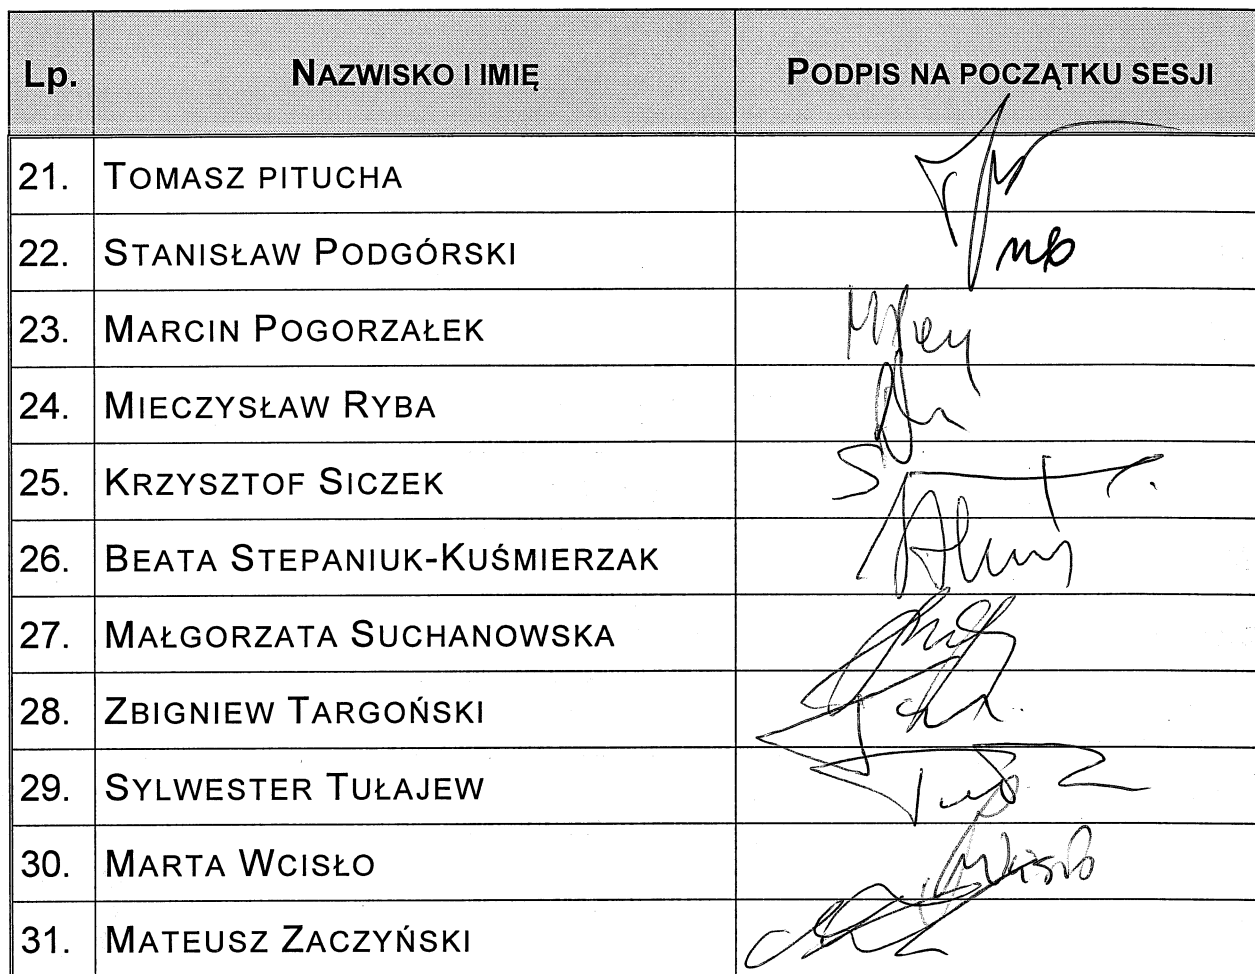 Lp. NAZWISKO I IMIĘ PODPIS NA POCZĄTKU SESJI
21. TOMASZ PITUCHA
22. STANISŁAW PODGÓRSKI nb
23. MARCIN POGORZAŁEK
24. MIECZYSŁAW RYBA
25. KRZYSZTOF SICZEK
26. BEATA STEPANIUK-KUŚMIERZAK
27. MAŁGORZATA SUCHANOWSKA
28. ZBIGNIEW TARGOŃSKI
29. SYLWESTER TUŁAJEW
30. MARTA WCISŁO MWcisło
31. MATEUSZ ZACZYŃSKI